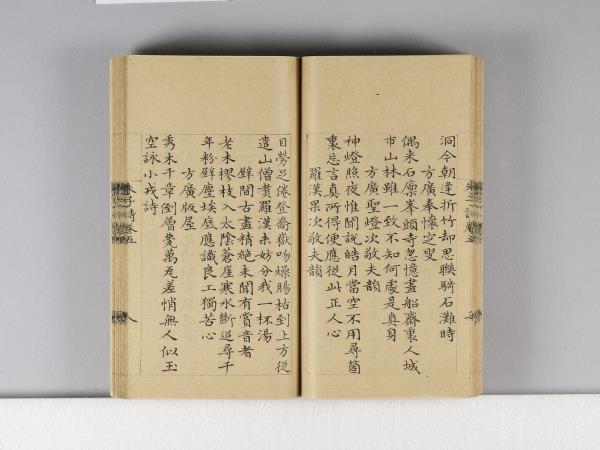 洞今朝逢折竹却思聯騎石灘時
方廣奉懷定叟
偶来石廪峯頭寺忽憶畫船齋裏人城
市山林雖一致不知何處是真身
方廣聖燈次敬夫韻
神燈照夜惟聞說皓月當空不用尋箇
裏忘言真所得便應從此正人心
羅漢果次敬夫韻
目勞足倦登喬嶽吻燥腸枯到上方從
遣山僧煑羅漢未妨分我一杯湯
壁間古畫精絶未聞有賞音者
老木樛枝入太陰蒼崖寒水斷追尋千
年粉壁塵埃底應識良工獨苦心
方廣版屋
秀木千章倒層甍萬瓦差悄無人似玉
空詠小戎詩